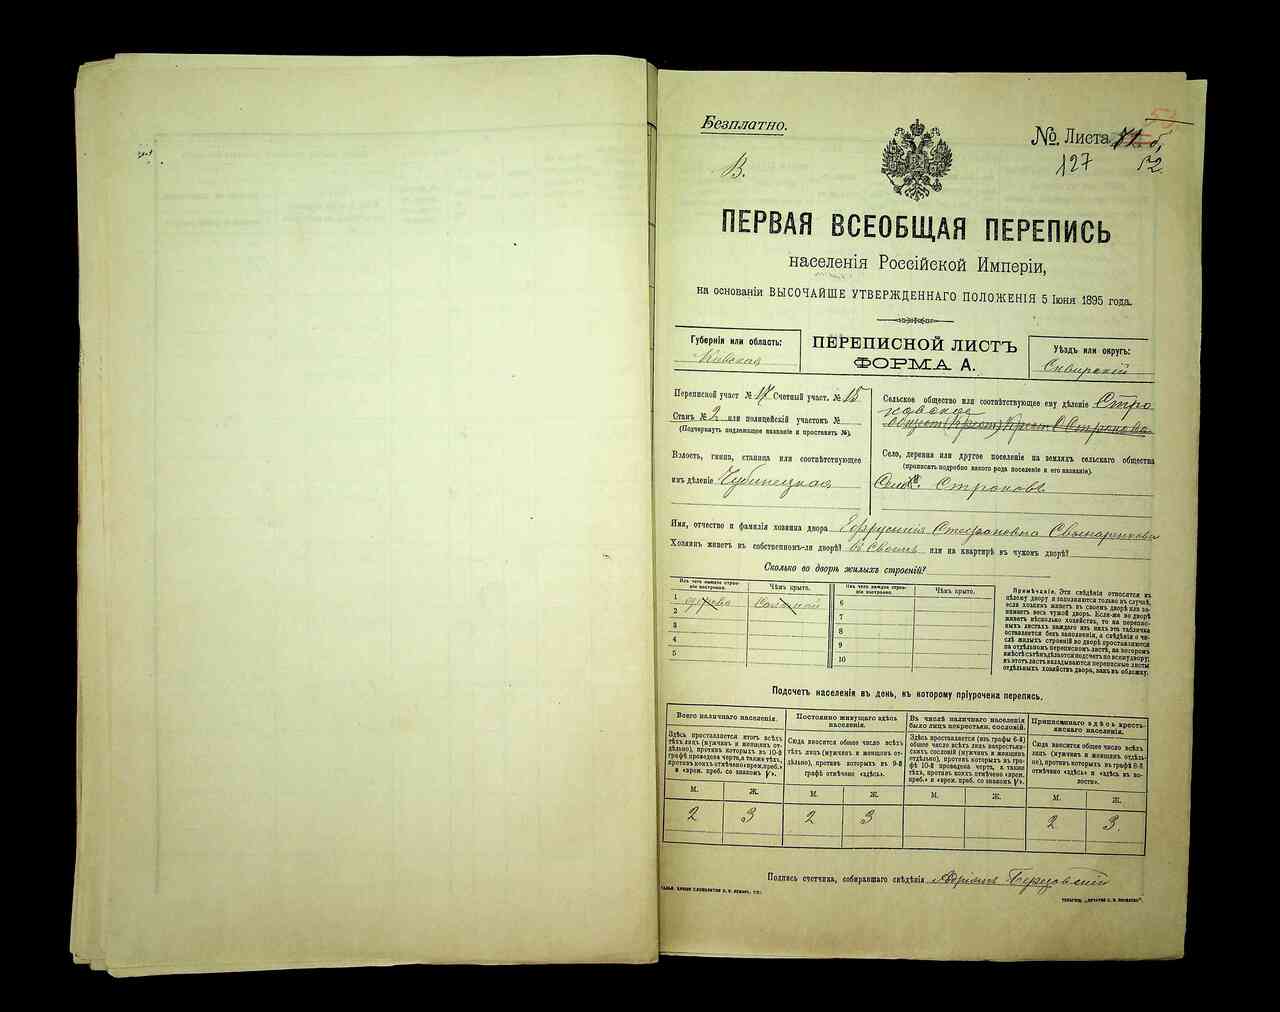 Безплатно.
№ Листа 71. б,
127 52.
В.
ПЕРВАЯ ВСЕОБЩАЯ ПЕРЕПИСЬ
населенія Россійской Имперіи,
на основаніи ВЫСОЧАЙШЕ УТВЕРЖДЕННАГО ПОЛОЖЕНІЯ 5 Іюня 1895 года.
Губернія или область:
Кіевская
ПЕРЕПИСНОЙ ЛИСТЪ
ФОРМА А.
Уѣздъ или округъ:
Сквирскій
Переписной участ. № 17 Счетный участ. № 15
Станъ № 2 или полицейскій участокъ №
(Подчеркнуть надлежащее названіе и проставить №).
Волость, гмина, станица или соотвѣтствующее
имъ дѣленіе Чубинецкая
Сельское общество или соотвѣтствующее ему дѣленіе Стро
ковское
Село, деревня или другое поселеніе на земляхъ сельскаго общества
(прописать подробно какого рода поселеніе и его названіе).
Село Строковъ
Имя, отчество и фамилія хозяина двора Ефрусинія Стефановна
Хозяинъ живетъ въ собственномъ-ли дворѣ? въ своемъ или на квартирѣ въ чужомъ дворѣ?
Сколько во дворѣ жилыхъ строеній?
Изъ чего каждое строеніе построено.
Чѣмъ крыто.
Изъ чего каждое строеніе построено.
Чѣмъ крыто.
1 дерево Соломой 6
2 7
3 8
4 9
5 10
Примѣчаніе. Эти свѣдѣнія относятся къ
цѣлому двору и заполняются только въ случаѣ,
если хозяинъ живетъ въ своемъ дворѣ или за-
нимаетъ весь чужой дворъ. Если-же во дворѣ
живетъ нѣсколько хозяйствъ, то на перепис-
ныхъ листахъ каждаго изъ нихъ эта табличка
оставляется безъ заполненія, а свѣдѣнія о чи-
слѣ жилыхъ строеній во дворѣ проставляются
на отдѣльномъ переписномъ листѣ, на которомъ
въ этотъ листъ вкладываются переписные листы
отдѣльныхъ хозяйствъ двора, какъ въ обложку.
Подсчетъ населенія въ день, къ которому пріурочена перепись.
Всего наличнаго населенія.
Постоянно живущаго здѣсь населенія.
Въ числѣ наличнаго населенія было лицъ некрестьян. сословій.
Приписаннаго здѣсь крестьянскаго населенія.
Здѣсь проставляется итогъ всѣхъ
тѣхъ лицъ (мужчинъ и женщинъ от-
дѣльно), противъ которыхъ въ 10-й
графѣ проведена черта, а также тѣхъ,
противъ коихъ отмѣчено «врем. преб.»
и «врем. преб. со знакомъ V».
Сюда вносится общее число всѣхъ
тѣхъ лицъ (мужчинъ и женщинъ от-
дѣльно), противъ которыхъ въ 9-й
графѣ отмѣчено «здѣсь».
Здѣсь проставляется (изъ графы 6-й)
общее число всѣхъ лицъ некрестьян-
скихъ сословій (мужчинъ и женщинъ
отдѣльно), противъ которыхъ въ гра-
фѣ 10-й проведена черта, а также
тѣхъ, противъ коихъ отмѣчено «врем.
преб.» и «врем. преб. со знакомъ V».
Сюда вносится общее число всѣхъ
лицъ (мужчинъ и женщинъ отдѣль-
но), противъ которыхъ въ графѣ 8-й
отмѣчено «здѣсь» и «здѣсь въ во-
лости».
М. Ж. М. Ж. М. Ж. М. Ж.
2 3 2 3 2 3.
Подпись счетчика, собиравшаго свѣдѣнія Адріанъ